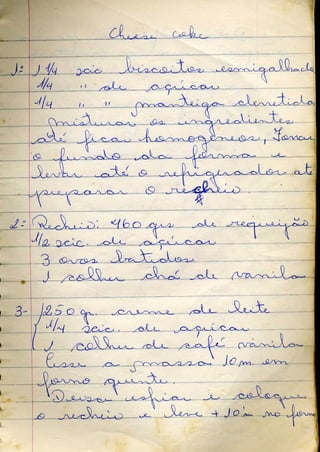 Cheese cake
1= 1 1/4 xic biscoitos esmigalhado
1/4 " de açúcar
1/4 " " manteiga derretida
misturar os ingredientes
até ficar homogêneos, Forrar
o fundo da forma e
levar até o refrigerador até
preparar o recheio
2= Recheio: 460 grs de requeijão
1/2 xic. de açúcar
3 ovos batidos
1 colher chá de vanila
3- 250 gr. creme de leite
1/4 xic. de açúcar
1 colher de café vanila
asse a massa 10m em
forno quente.
Deixa esfriar e coloque
o recheio e leve + 10m no forno